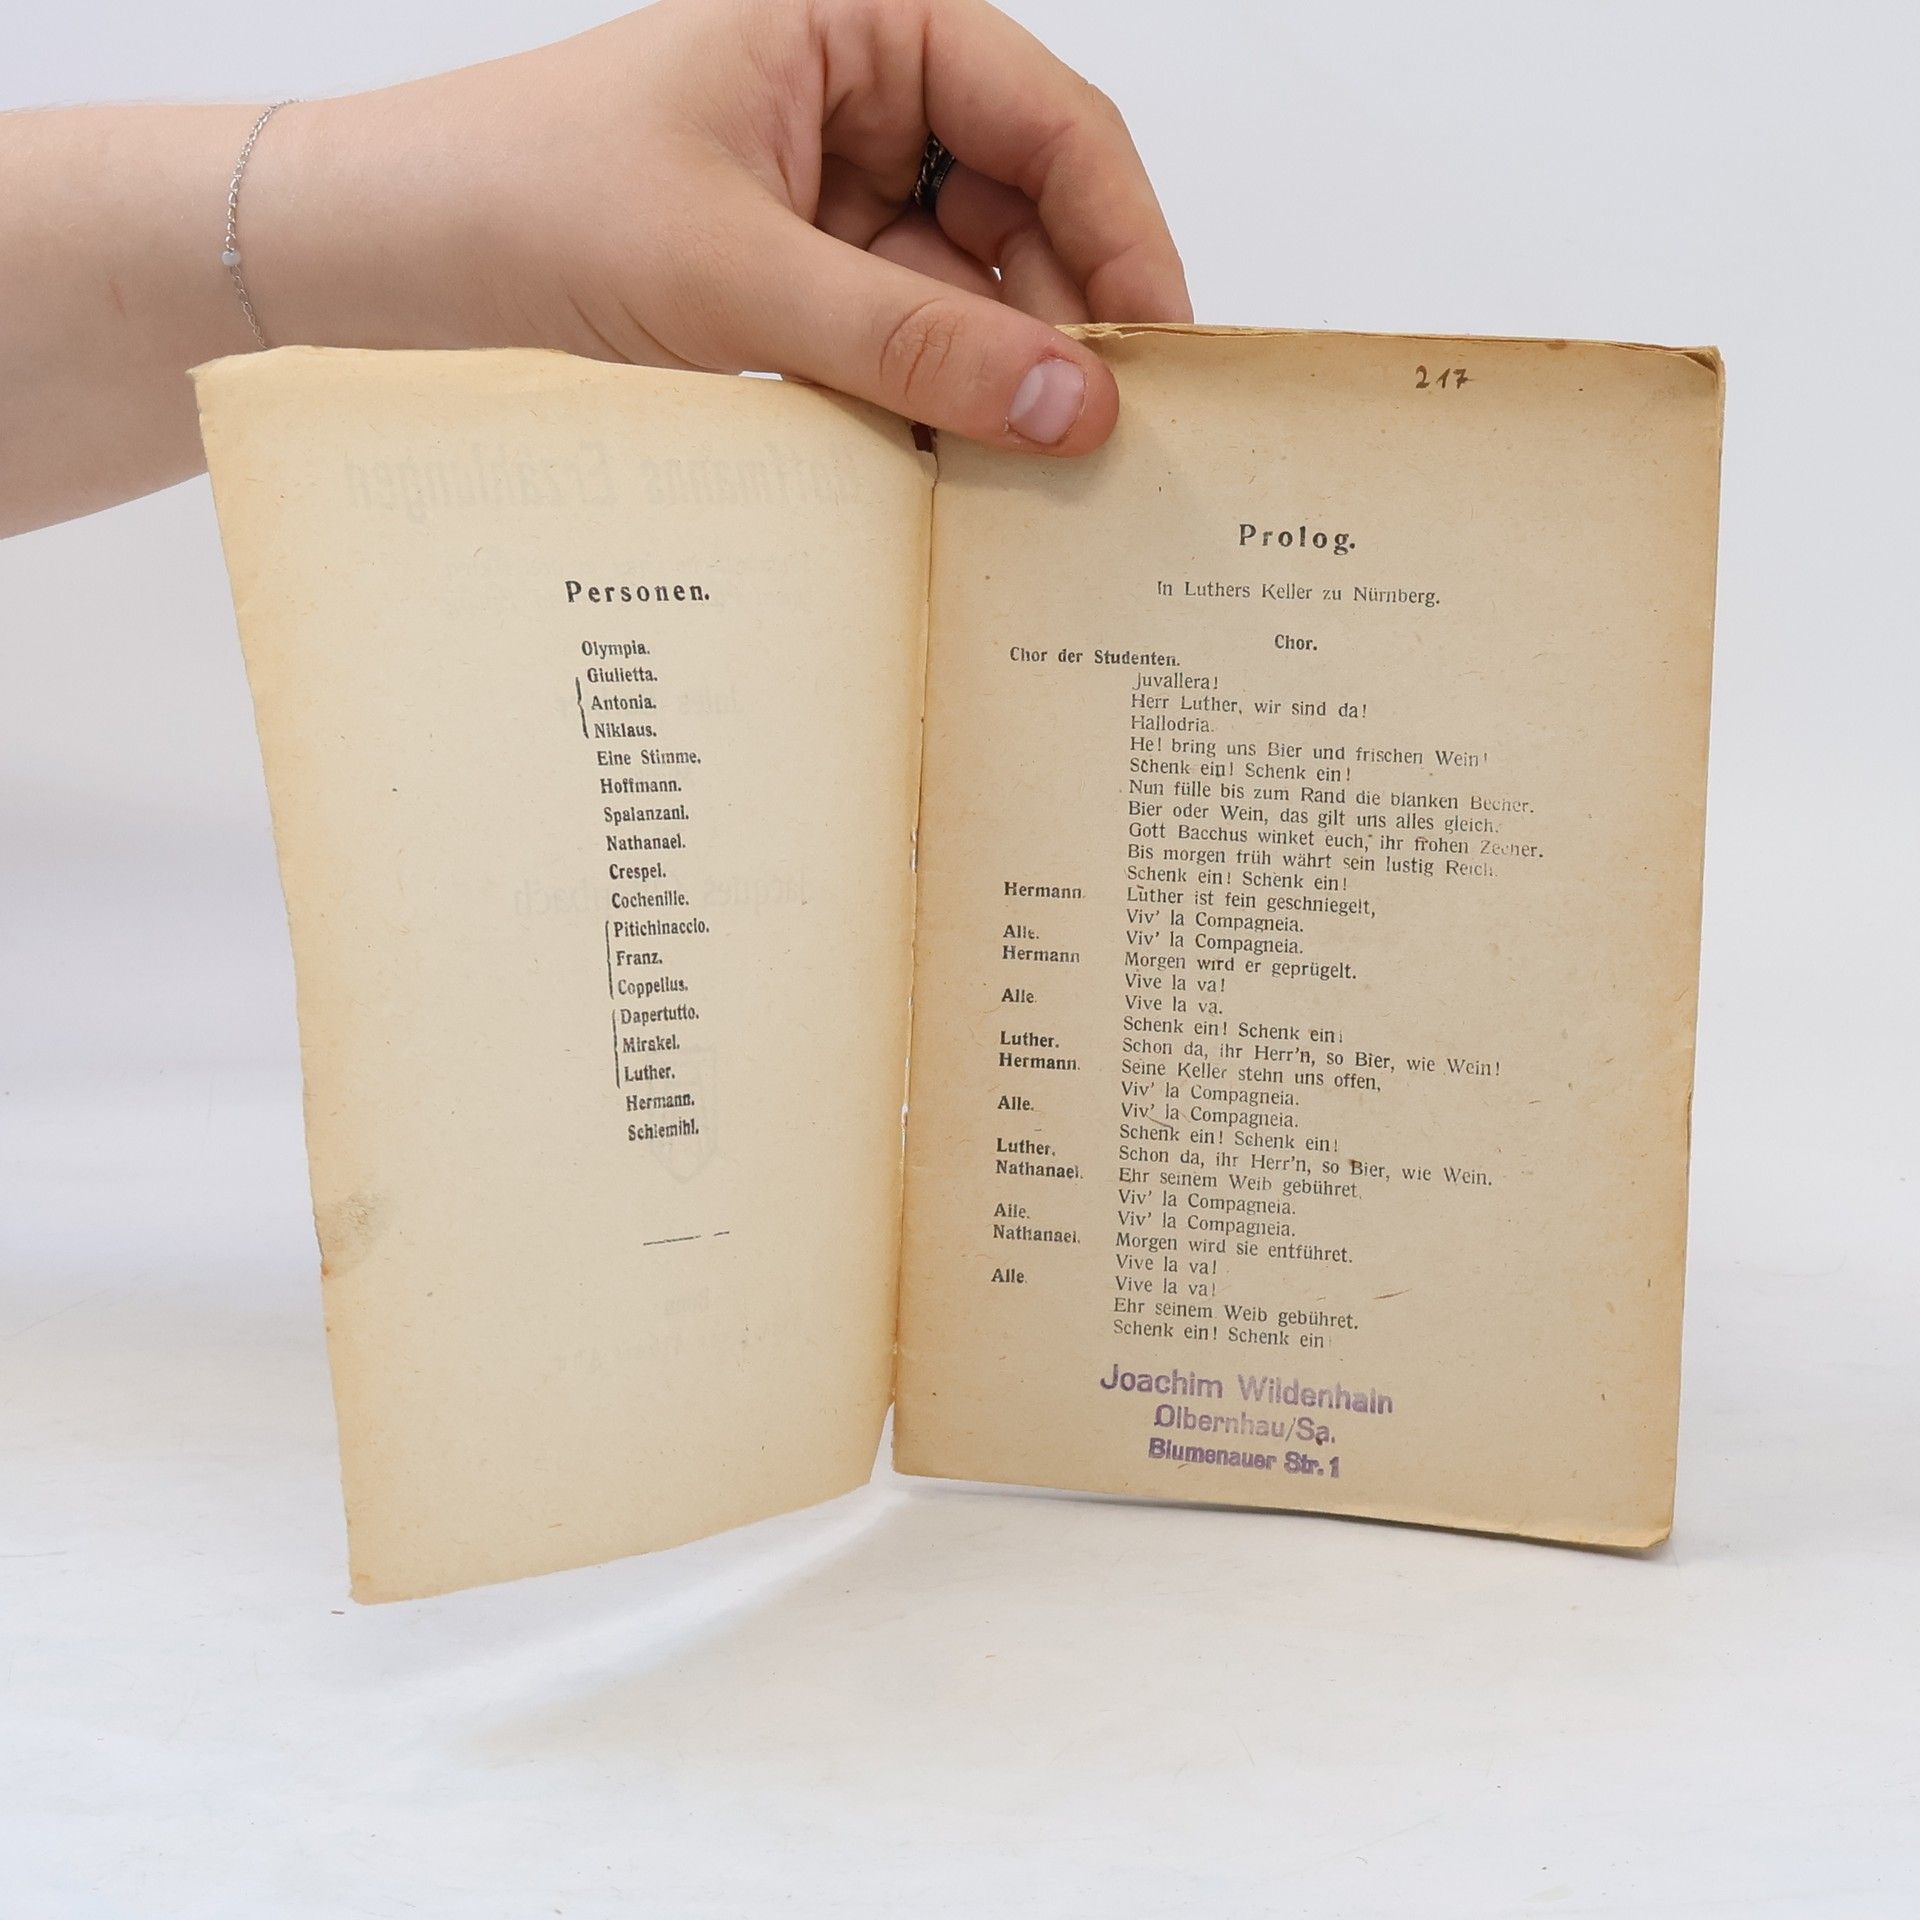 Personen.
Olympia.
Giulietta.
Antonia.
Niklaus.
Eine Stimme.
Hoffmann.
Spalanzani.
Nathanael.
Crespel.
Cochenille.
Pitichinaccio.
Franz.
Coppelius.
Dapertutto.
Mirakel.
Luther.
Hermann.
Schlemihl.
217
Prolog.
In Luthers Keller zu Nürnberg.
Chor.
Chor der Studenten.
Juvallera!
Herr Luther, wir sind da!
Hallodria.
He! bring uns Bier und frischen Wein!
Schenk ein! Schenk ein!
Nun fülle bis zum Rand die blanken Becher.
Bier oder Wein, das gilt uns alles gleich.
Gott Bacchus winket euch, ihr frohen Zecher.
Bis morgen früh währt sein lustig Reich.
Schenk ein! Schenk ein!
Hermann. Luther ist fein geschniegelt,
Viv' la Compagneia.
Alle. Viv' la Compagneia.
Hermann Morgen wird er geprügelt.
Vive la va!
Alle. Vive la va.
Schenk ein! Schenk ein!
Luther. Schon da, ihr Herr'n, so Bier, wie Wein!
Hermann. Seine Keller stehn uns offen,
Viv' la Compagneia.
Alle. Viv' la Compagneia.
Schenk ein! Schenk ein!
Luther. Schon da, ihr Herr'n, so Bier, wie Wein.
Nathanael. Ehr seinem Weib gebühret,
Viv' la Compagneia.
Alle. Viv' la Compagneia.
Nathanael. Morgen wird sie entführet.
Vive la va!
Alle. Vive la va!
Ehr seinem Weib gebühret.
Schenk ein! Schenk ein
Joachim Wildenhain
Olbernhau/Sa.
Blumenauer Str. 1